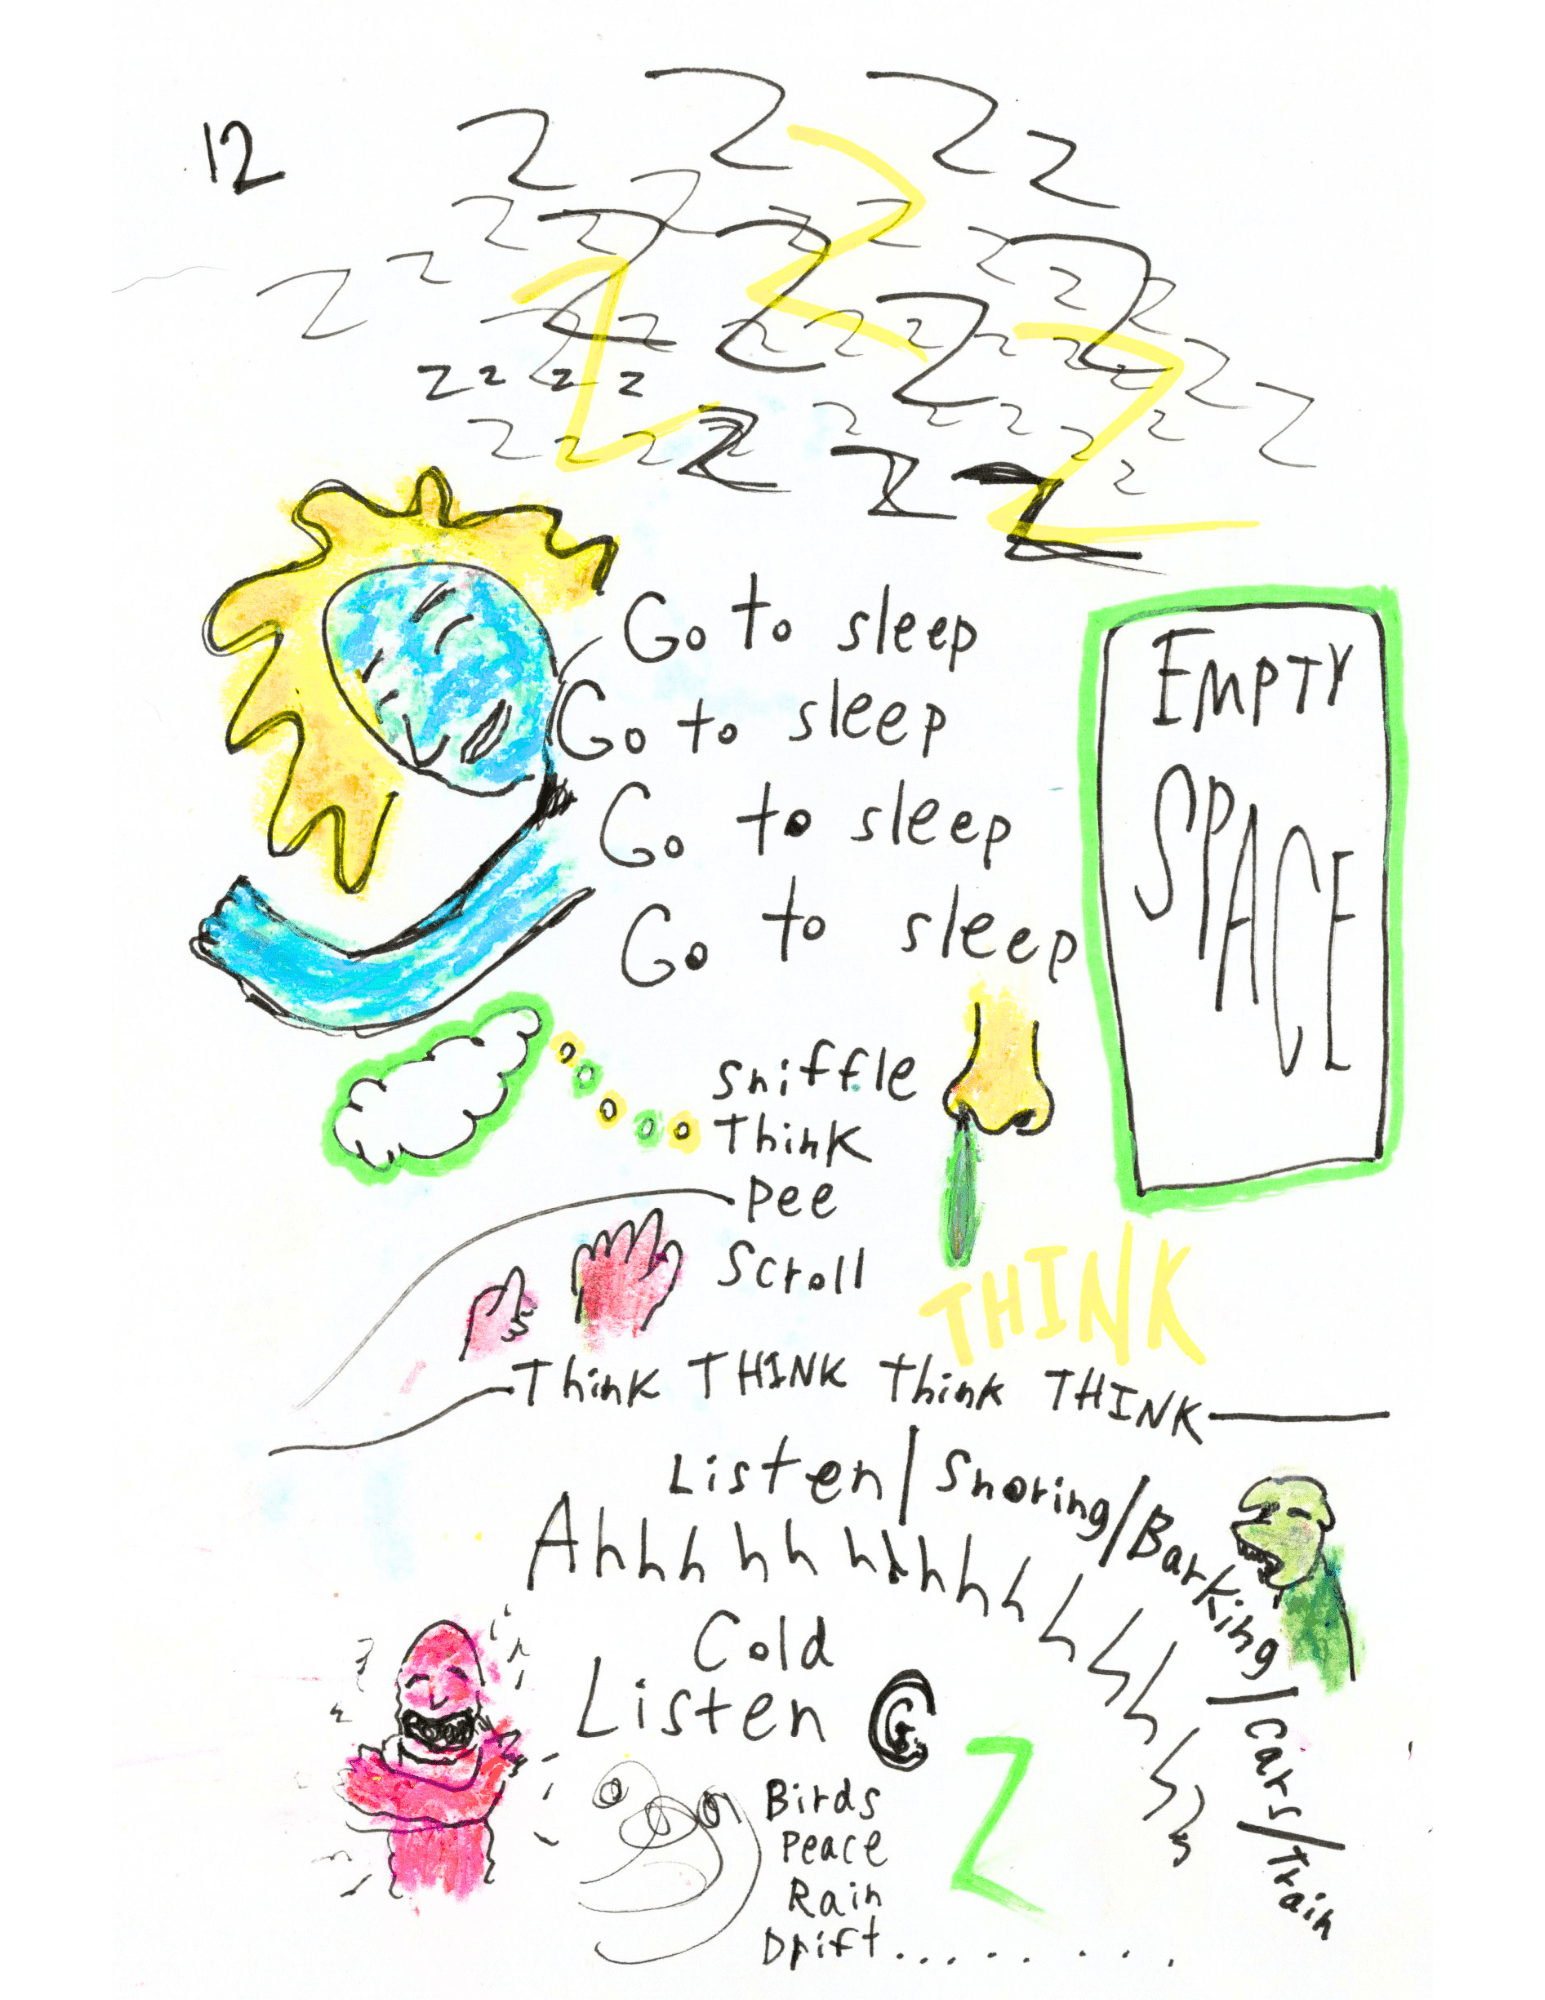 12
z z z z
z z z z z z z
z z z z z z z z
z z z z z z z z z z z z
z z z z z z z z z z
z z z z z z z z z z z
Go to sleep
Go to sleep
Go to sleep
Go to sleep
EMPTY
SPACE
Sniffle
Think
Pee
Scroll
THINK
Think THINK think THINK
Listen/Snoring/Barking/Cars/Train
Ahhhhhhhhhhhhhhhhh
Cold
Listen
Z
Birds
Peace
Rain
Drift.........